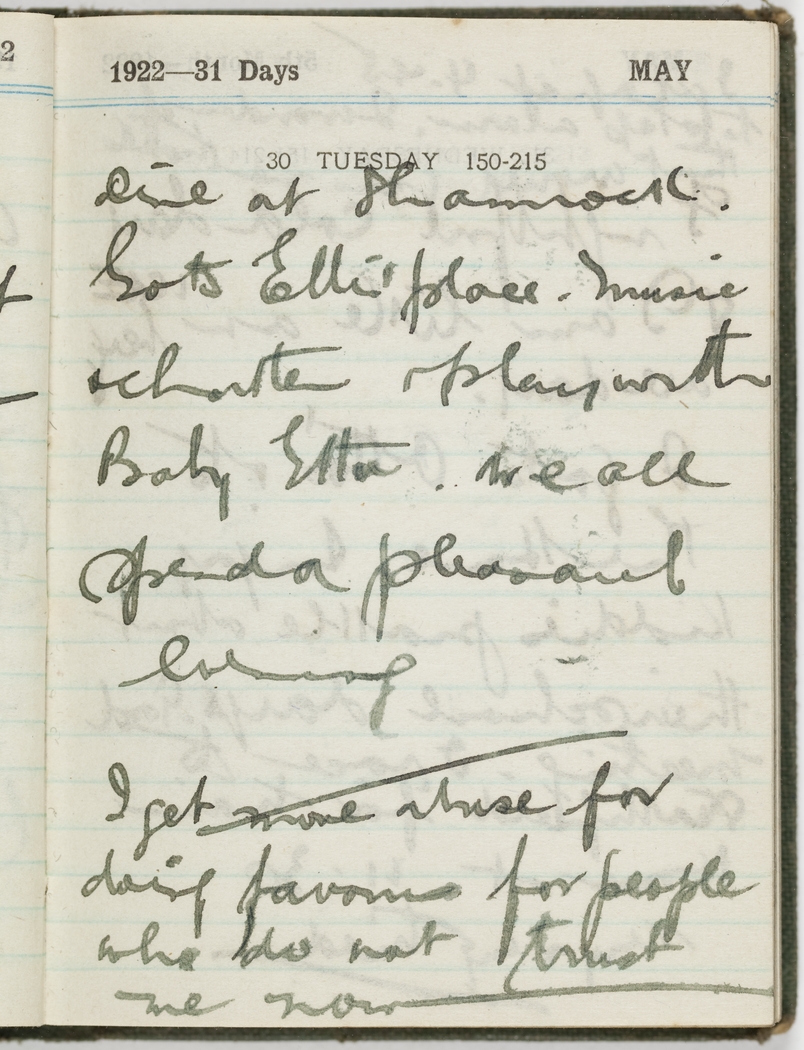 2
1922—31 Days MAY
30 TUESDAY 150-215
dine at Shamrock.
Go to Ellis' place. Music
& plays with
Baby Etta. We all
spend a pleasant
evening
I get more abuse for
doing favours for people
who do not trust
me now